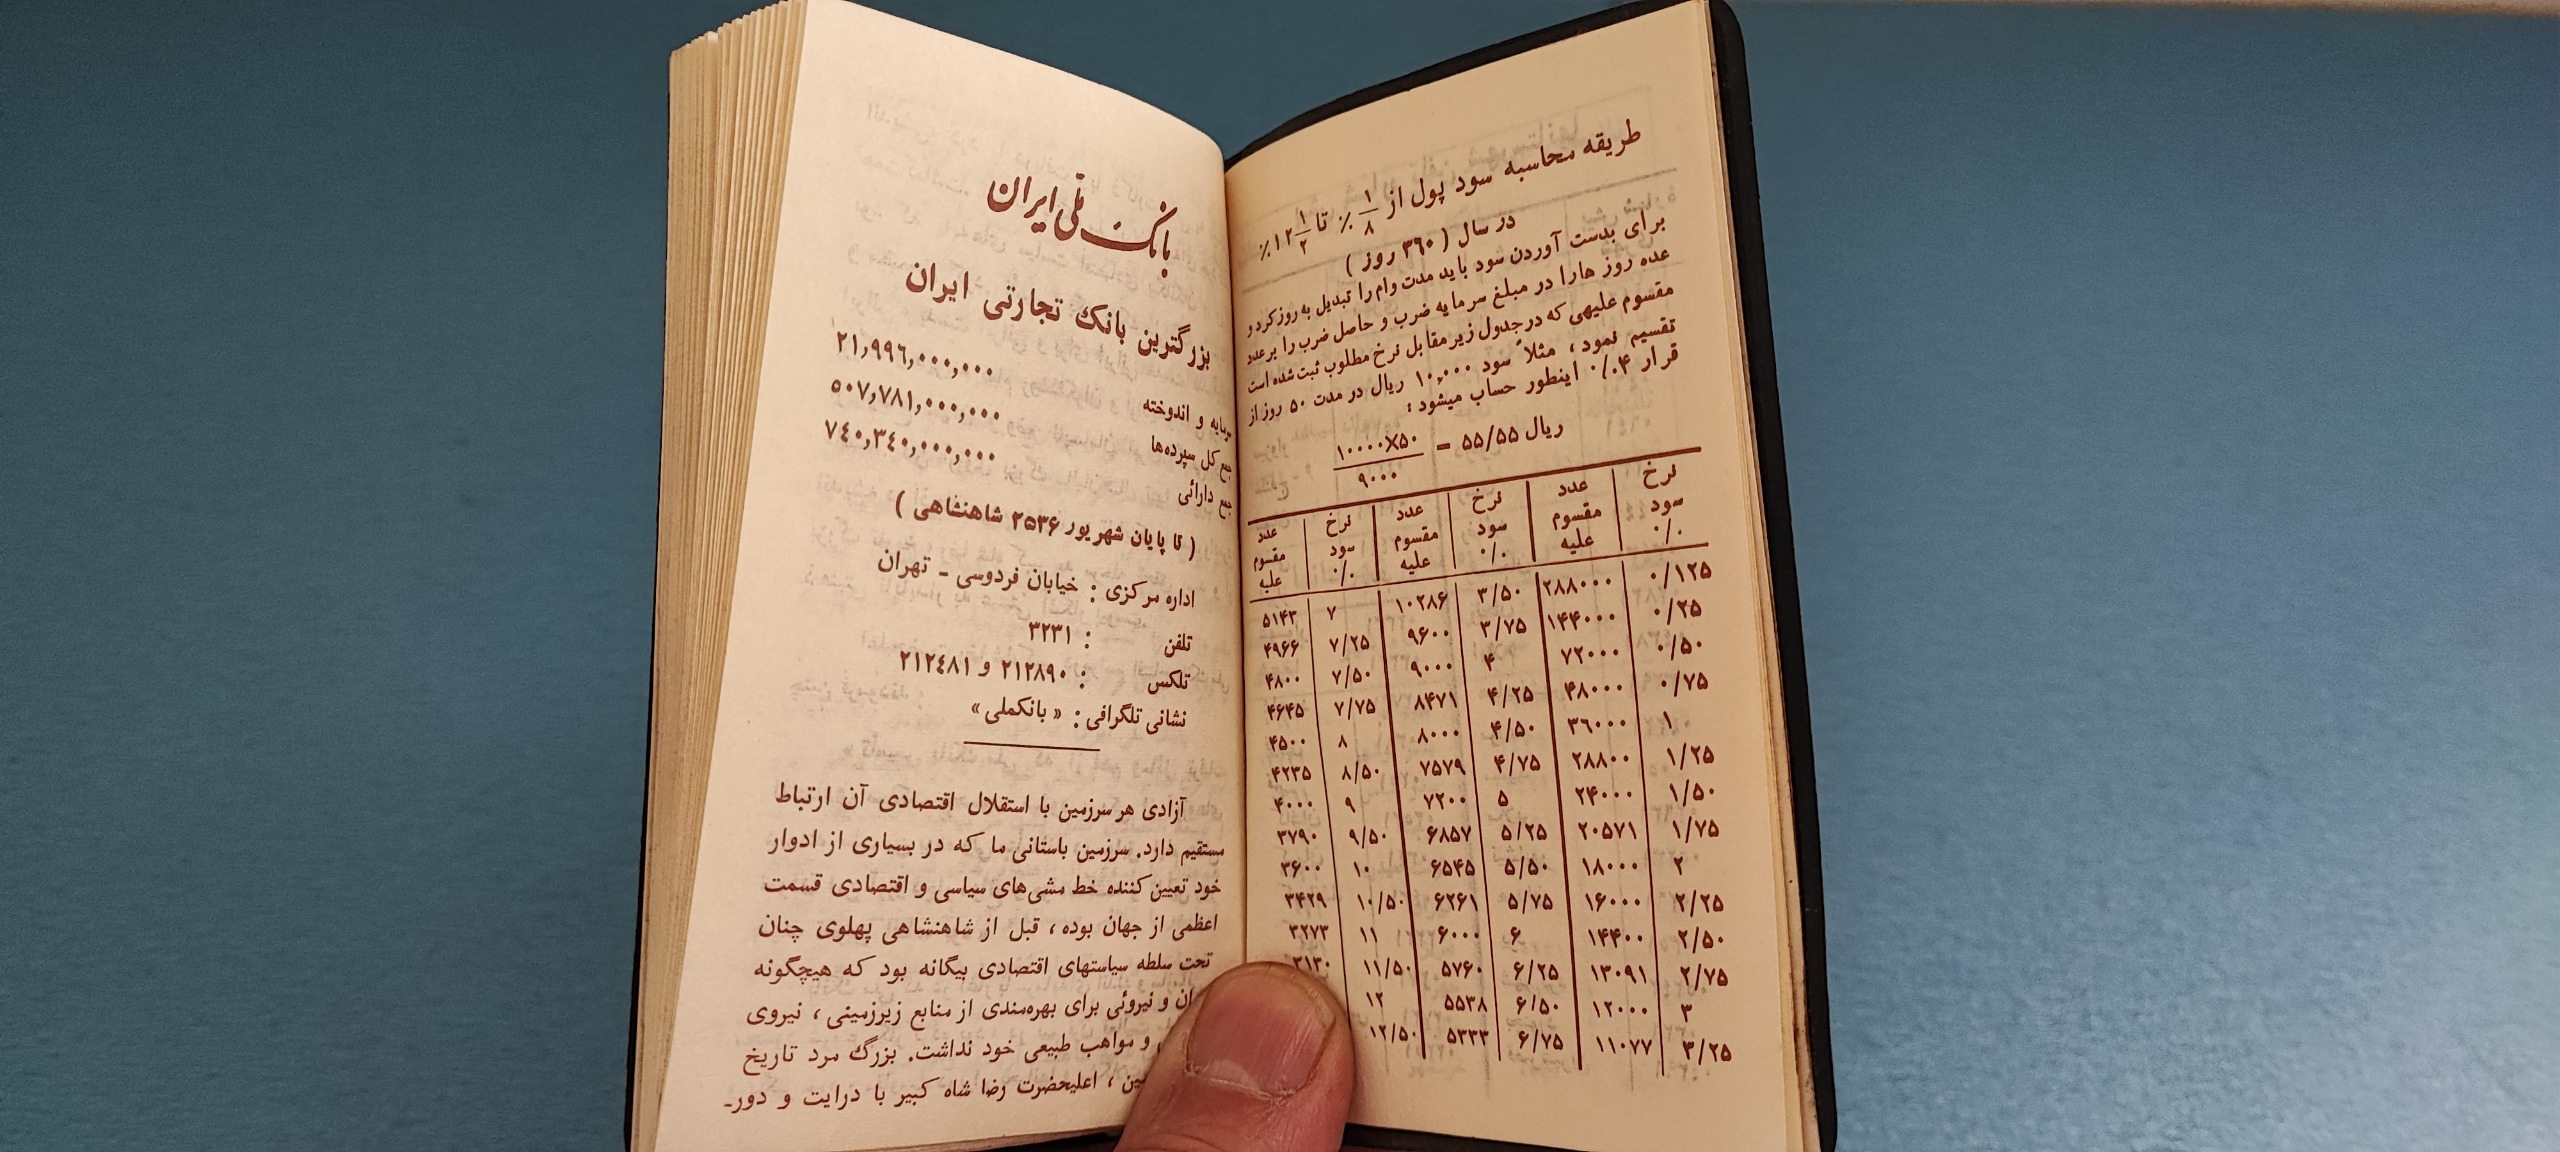 طریقه محاسبه سود پول از ۱/۸ ٪ تا ۱۲ ۱/۲ ٪
در سال ( ۳۶۰ روز )
برای بدست آوردن سود باید مدت وام را تبدیل به روز کرد و
عده روز هارا در مبلغ سرمایه ضرب و حاصل ضرب را بر عدد
مقسوم علیهی که در جدول زیر مقابل نرخ مطلوب ثبت شده است
تقسیم نمود ، مثلاً سود ۱۰,۰۰۰ ریال در مدت ۵۰ روز از
قرار ۴٪ اینطور حساب میشود :
ریال ۵۵/۵۵ = ۱۰۰۰۰×۵۰
۹۰۰۰
نرخ سود ٪ عدد مقسوم علیه نرخ سود ٪ عدد مقسوم علیه نرخ سود ٪ عدد مقسوم علیه
۰/۱۲۵ ۲۸۸۰۰۰ ۳/۵۰ ۱۰۲۸۶ ۷ ۵۱۴۳
۰/۲۵ ۱۴۴۰۰۰ ۳/۷۵ ۹۶۰۰ ۷/۲۵ ۴۹۶۶
۰/۵۰ ۷۲۰۰۰ ۴ ۹۰۰۰ ۷/۵۰ ۴۸۰۰
۰/۷۵ ۴۸۰۰۰ ۴/۲۵ ۸۴۷۱ ۷/۷۵ ۴۶۴۵
۱ ۳۶۰۰۰ ۴/۵۰ ۸۰۰۰ ۸ ۴۵۰۰
۱/۲۵ ۲۸۸۰۰ ۴/۷۵ ۷۵۷۹ ۸/۵۰ ۴۲۳۵
۱/۵۰ ۲۴۰۰۰ ۵ ۷۲۰۰ ۹ ۴۰۰۰
۱/۷۵ ۲۰۵۷۱ ۵/۲۵ ۶۸۵۷ ۹/۵۰ ۳۷۹۰
۲ ۱۸۰۰۰ ۵/۵۰ ۶۵۴۵ ۱۰ ۳۶۰۰
۲/۲۵ ۱۶۰۰۰ ۵/۷۵ ۶۲۶۱ ۱۰/۵۰ ۳۴۲۹
۲/۵۰ ۱۴۴۰۰ ۶ ۶۰۰۰ ۱۱ ۳۲۷۳
۲/۷۵ ۱۳۰۹۱ ۶/۲۵ ۵۷۶۰ ۱۱/۵۰ ۳۱۳۰
۳ ۱۲۰۰۰ ۶/۵۰ ۵۵۳۸ ۱۲
۳/۲۵ ۱۱۰۷۷ ۶/۷۵ ۵۳۳۳ ۱۲/۵۰
بانک ملی ایران
بزرگترین بانک تجارتی ایران
سرمایه و اندوخته ۲۱,۹۹٦,۰۰۰,۰۰۰
جمع کل سپرده‌ها ۵۰۷,۷۸۱,۰۰۰,۰۰۰
جمع دارائی ۷٤۰,۳٤۰,۰۰۰,۰۰۰
( تا پایان شهریور ۲۵۳۶ شاهنشاهی )
اداره مرکزی : خیابان فردوسی - تهران
تلفن : ۳۲۳۱
تلکس : ۲۱۲۸۹۰ و ۲۱۲٤۸۱
نشانی تلگرافی : « بانکملی »
آزادی هر سرزمین با استقلال اقتصادی آن ارتباط
مستقیم دارد. سرزمین باستانی ما که در بسیاری از ادوار
خود تعیین کننده خط مشی‌های سیاسی و اقتصادی قسمت
اعظمی از جهان بوده ، قبل از شاهنشاهی پهلوی چنان
تحت سلطه سیاستهای اقتصادی بیگانه بود که هیچگونه
و نیروئی برای بهره‌مندی از منابع زیرزمینی ، نیروی
و مواهب طبیعی خود نداشت. بزرگ مرد تاریخ
، اعلیحضرت رضا شاه کبیر با درایت و دور-